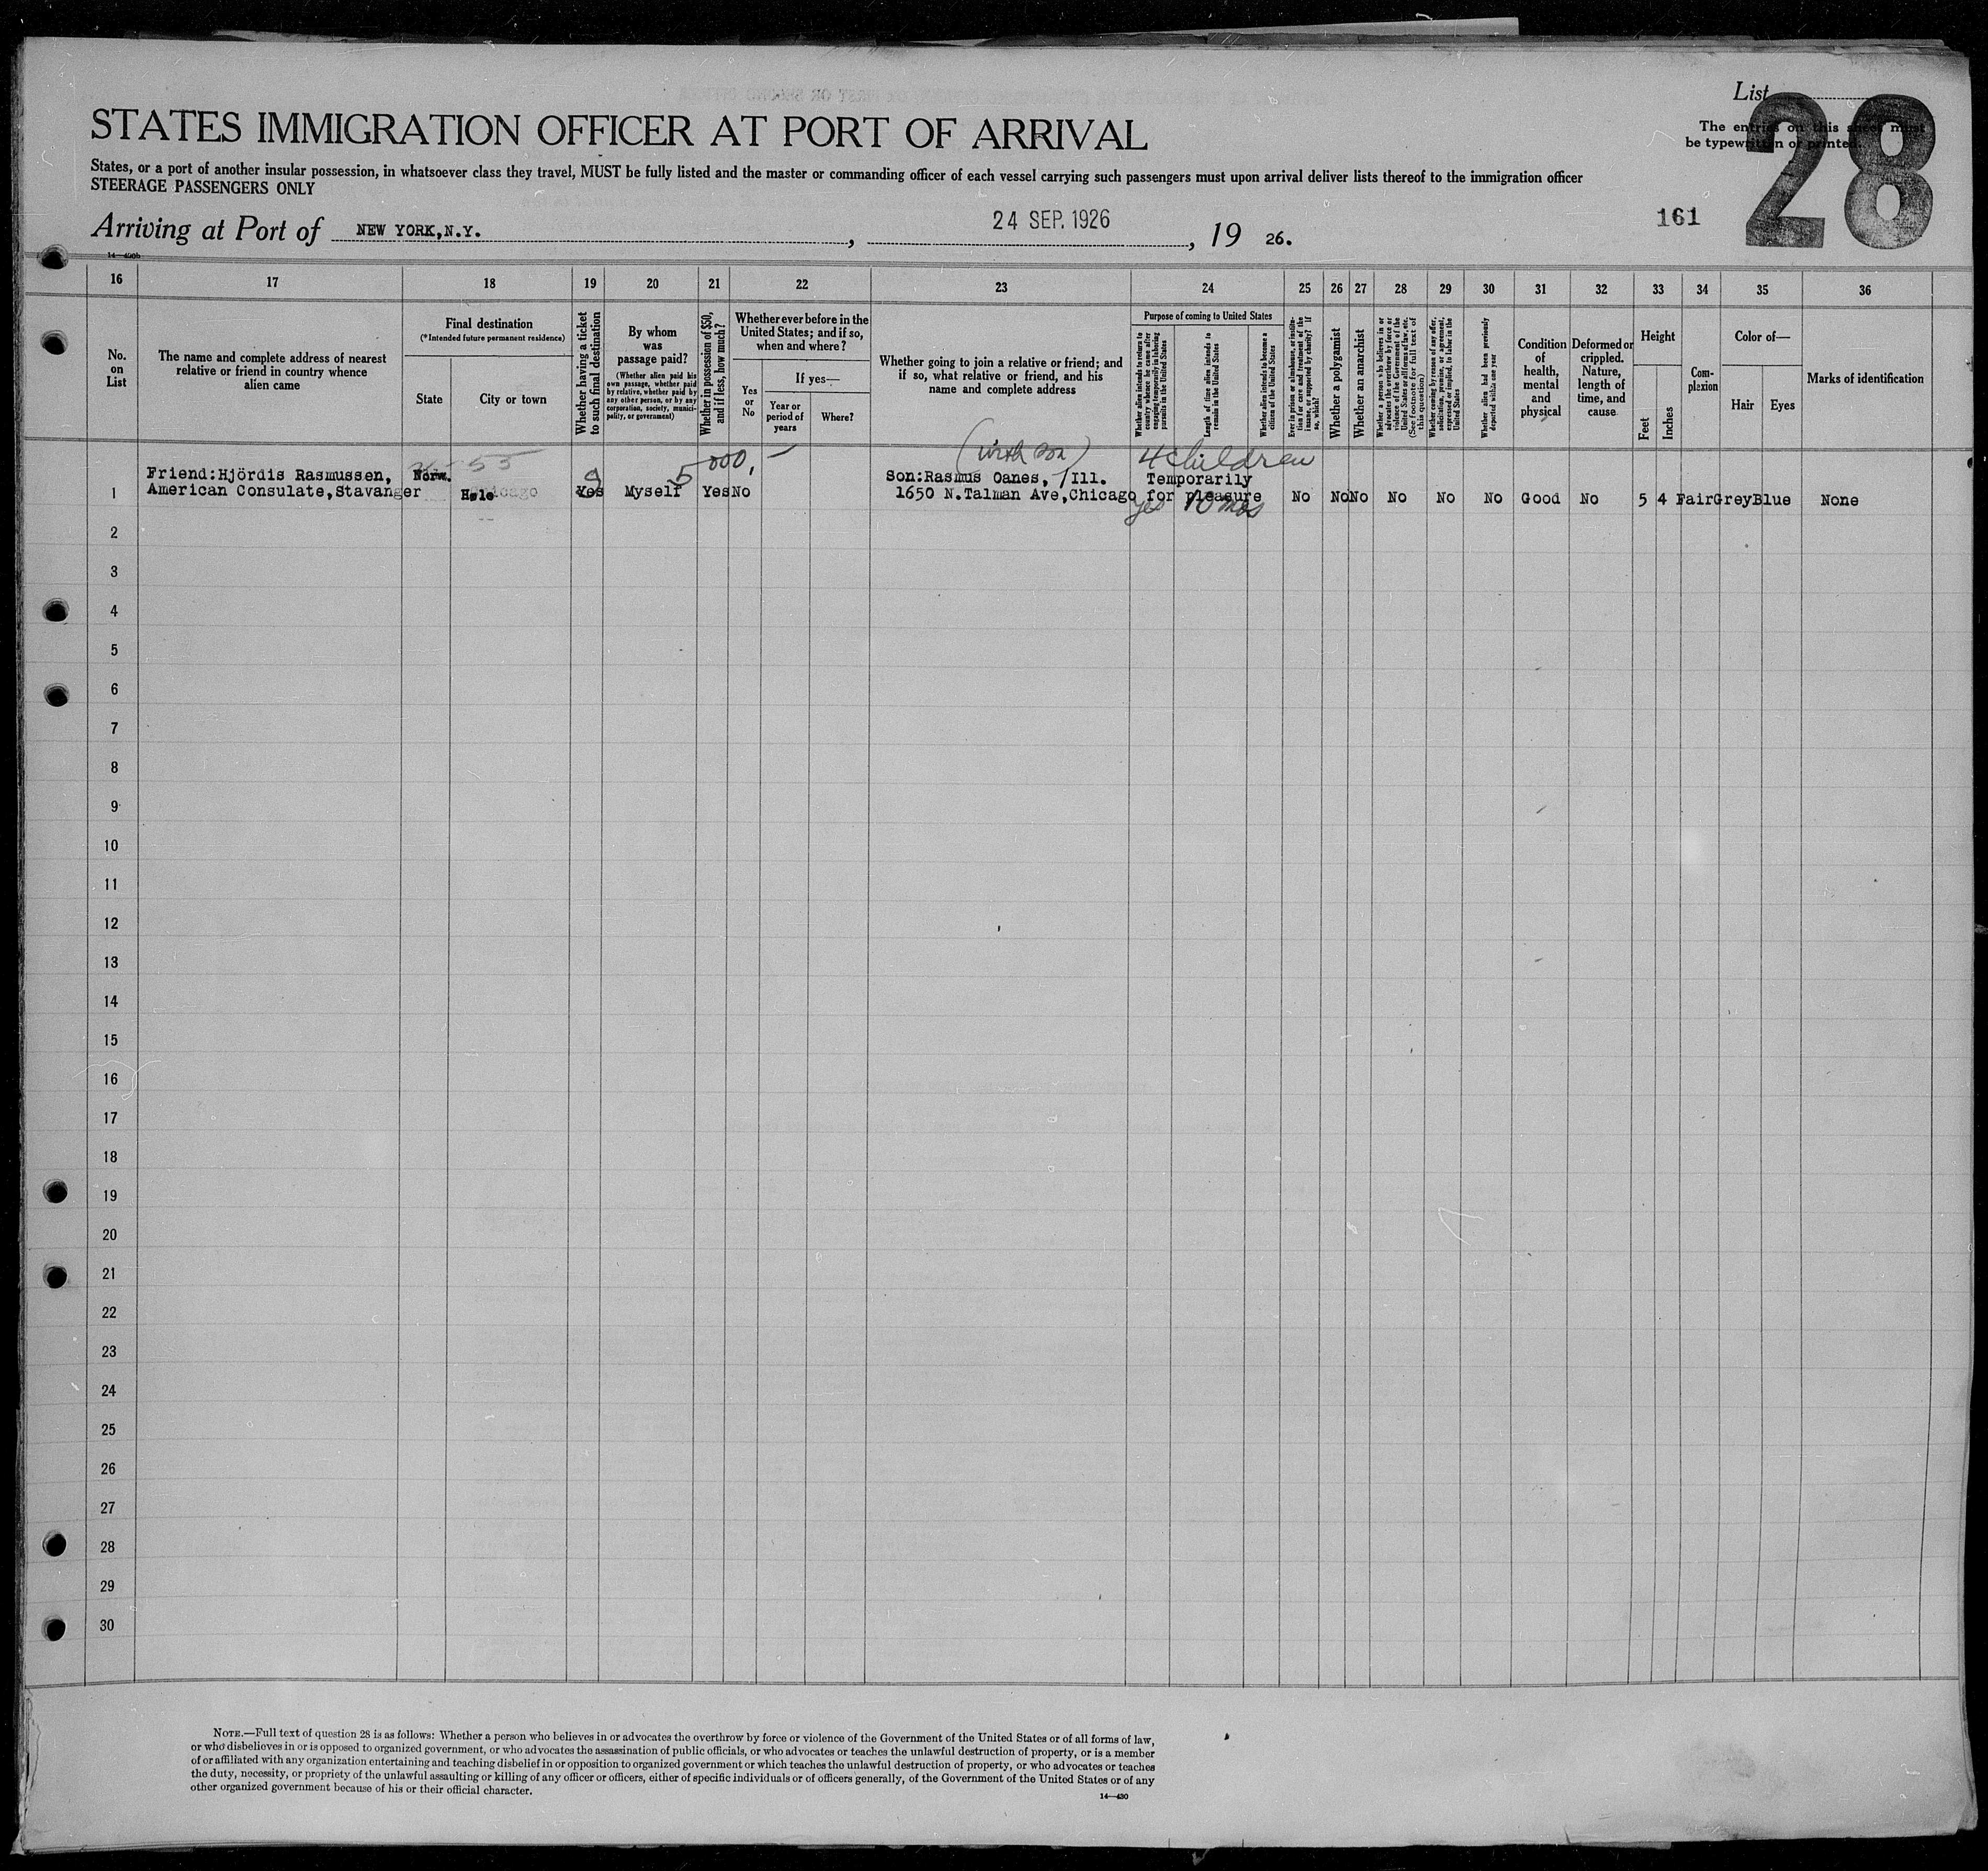 List
28
The entries on this sheet must
be typewritten or printed.
STATES IMMIGRATION OFFICER AT PORT OF ARRIVAL
States, or a port of another insular possession, in whatsoever class they travel, MUST be fully listed and the master or commanding officer of each vessel carrying such passengers must upon arrival deliver lists thereof to the immigration officer
STEERAGE PASSENGERS ONLY
161
Arriving at Port of NEW YORK,N.Y. , 24 SEP. 1926 , 19 26.
16 17 18 19 20 21 22 23 24 25 26 27 28 29 30 31 32 33 34 35 36
No.
on
List
The name and complete address of nearest
relative or friend in country whence
alien came
Final destination
(*Intended future permanent residence)
State
City or town
Whether having a ticket
to such final destination
By whom
was
passage paid?
(Whether alien paid his
own passage, whether paid
by relative, whether paid by
any other person, or by any
corporation, society, munici-
pality, or government)
Whether in possession of $50,
and if less, how much?
Whether ever before in the
United States; and if so,
when and where?
Yes
or
No
If yes—
Year or
period of
years
Where?
Whether going to join a relative or friend; and
if so, what relative or friend, and his
name and complete address
Purpose of coming to United States
Whether alien intends to return to
country whence he came after
engaging temporarily in laboring
pursuits in the United States
Length of time alien intends to
remain in the United States
Whether alien intends to become a
citizen of the United States
Ever in prison or almshouse, or institu-
tion for care and treatment of the
insane, or supported by charity? If
so, which?
Whether a polygamist
Whether an anarchist
Whether a person who believes in or
advocates the overthrow by force or
violence of the Government of the
United States or all forms of law, etc.
(See footnote for full text of
this question)
Whether coming by reason of any offer,
solicitation, promise, or agreement,
expressed or implied, to labor in the
United States
Whether alien had been previously
deported within one year
Condition
of
health,
mental
and
physical
Deformed or
crippled.
Nature,
length of
time, and
cause
Height
Feet
Inches
Com-
plexion
Color of—
Hair
Eyes
Marks of identification
55 5000,- (with son) 4 children
Friend:Hjördis Rasmussen, Norw. Son:Rasmus Oanes, /Ill. Temporarily
1 American Consulate,Stavanger Hole Chicago Yes Myself Yes No 1650 N.Talman Ave,Chicago for pleasure No No No No No No Good No 5 4 Fair Grey Blue None
yes 10 mos
2
3
4
5
6
7
8
9
10
11
12
13
14
15
16
17
18
19
20
21
22
23
24
25
26
27
28
29
30
NOTE.—Full text of question 28 is as follows: Whether a person who believes in or advocates the overthrow by force or violence of the Government of the United States or of all forms of law,
or who disbelieves in or is opposed to organized government, or who advocates the assassination of public officials, or who advocates or teaches the unlawful destruction of property, or is a member
of or affiliated with any organization entertaining and teaching disbelief in or opposition to organized government or which teaches the unlawful destruction of property, or who advocates or teaches
the duty, necessity, or propriety of the unlawful assaulting or killing of any officer or officers, either of specific individuals or of officers generally, of the Government of the United States or of any
other organized government because of his or their official character.
14—430